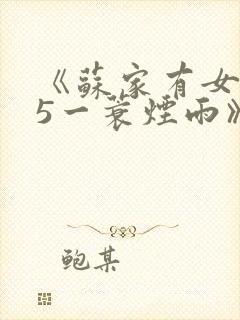 《蘇家有女
5一蓑煙雨》
鲍某